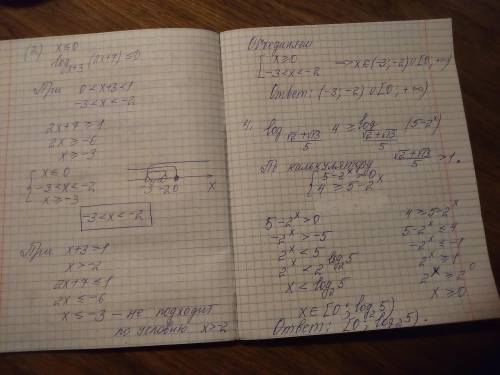 (2) x≤0
log_{x+3} (2x+7) ≤ 0
При 0<x+3<1
-3<x<-2
2x+7≥1
2x≥-6
x≥-3
{ x≤0
{ -3<x<-2
{ x≥-3
-3 -2 0 x
-3<x<-2
При x+3>1
x>-2
2x+7≤1
2x≤-6
x≤-3 — не подходит
по условию x>-2
Объединяем
{ x≥0
{ -3<x<-2 ⟹ x∈(-3;-2)∪[0;+∞)
Ответ: (-3;-2)∪[0;+∞)
4. log_{(√2+√13)/5} 4 ≥ log_{(√2+√13)/5} (5-2^x)
По калькулятору (√2+√13)/5 > 1.
{ 5-2^x>0
{ 4≥5-2^x
5-2^x>0
-2^x>-5
2^x<5
2^x<2^{log_2 5}
x<log_2 5
4≥5-2^x
5-2^x≤4
-2^x≤-1
2^x≥1
2^x≥2^0
x≥0
x∈[0;log_2 5)
Ответ: [0;log_2 5).